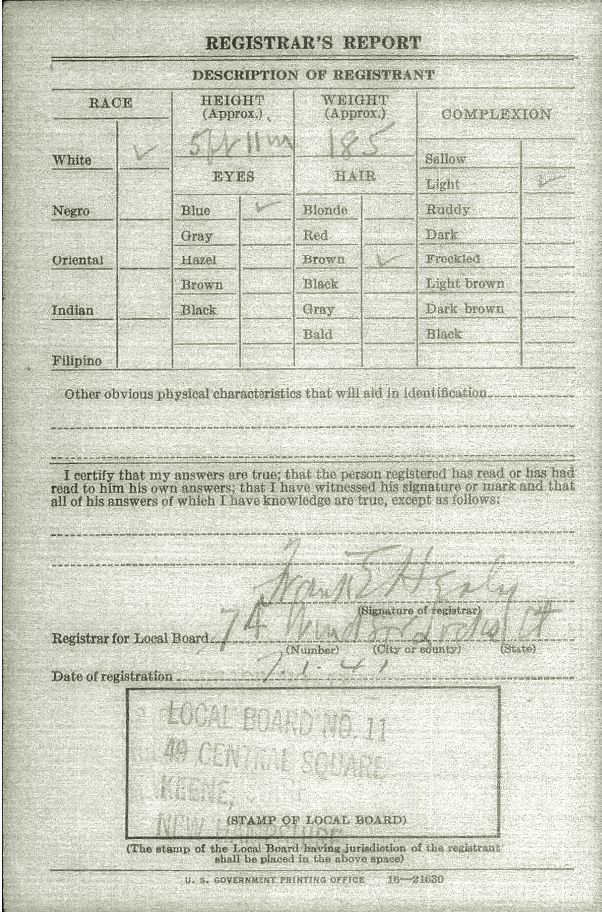 REGISTRAR'S REPORT
DESCRIPTION OF REGISTRANT
RACE HEIGHT (Approx.) WEIGHT (Approx.) COMPLEXION
5 ft 11 in 185
White ✓ EYES HAIR Sallow
Light ✓
Negro Blue ✓ Blonde Ruddy
Gray Red Dark
Oriental Hazel Brown ✓ Freckled
Brown Black Light brown
Indian Black Gray Dark brown
Bald Black
Filipino
Other obvious physical characteristics that will aid in identification
I certify that my answers are true; that the person registered has read or has had
read to him his own answers; that I have witnessed his signature or mark and that
all of his answers of which I have knowledge are true, except as follows:
Frank E Healy
(Signature of registrar)
Registrar for Local Board 74
(Number) (City or county) (State)
Date of registration 7-1-41
LOCAL BOARD NO. 11
49 CENTRAL SQUARE
KEENE,
(STAMP OF LOCAL BOARD)
NEW HAMPSHIRE
(The stamp of the Local Board having jurisdiction of the registrant
shall be placed in the above space)
U. S. GOVERNMENT PRINTING OFFICE 16—21630